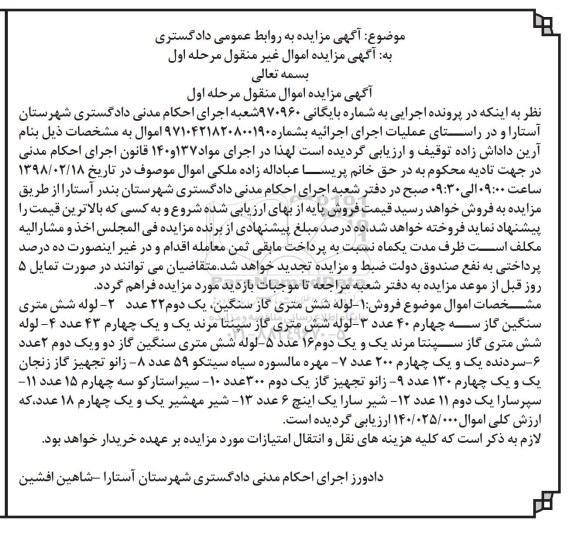 موضوع: آگهی مزایده به روابط عمومی دادگستری
به: آگهی مزایده اموال غیر منقول مرحله اول
بسمه تعالی
آگهی مزایده اموال منقول مرحله اول
نظر به اینکه در پرونده اجرایی به شماره بایگانی ۹۷۰۹۶۰شعبه اجرای احکام مدنی دادگستری شهرستان
آستارا و در راستای عملیات اجرای اجرائیه بشماره۹۷۱۰۴۲۱۸۲۰۸۰۰۱۹۰ اموال به مشخصات ذیل بنام
آرین داداش زاده توقیف و ارزیابی گردیده است لهذا در اجرای مواد۱۳۷و۱۴۰ قانون اجرای احکام مدنی
در جهت تادیه محکوم به در حق خانم پریسا عباداله زاده ملکی اموال موصوف در تاریخ ۱۳۹۸/۰۲/۱۸
ساعت ۰۹:۰۰الی۰۹:۳۰ صبح در دفتر شعبه اجرای احکام مدنی دادگستری شهرستان بندر آستارا از طریق
مزایده به فروش خواهد رسید قیمت فروش پایه از بهای ارزیابی شده شروع و به کسی که بالاترین قیمت را
پیشنهاد نماید فروخته خواهد شد.ده درصد مبلغ پیشنهادی از برنده مزایده فی المجلس اخذ و مشارالیه
مکلف است ظرف مدت یکماه نسبت به پرداخت مابقی ثمن معامله اقدام و در غیر اینصورت ده درصد
پرداختی به نفع صندوق دولت ضبط و مزایده تجدید خواهد شد.متقاضیان می توانند در صورت تمایل ۵
روز قبل از موعد مزایده به دفتر شعبه مراجعه تا موجبات بازدید مورد مزایده فراهم گردد.
مشخصات اموال موضوع فروش:۱-لوله شش متری گاز سنگین، یک دوم۲۲ عدد ۲- لوله شش متری
سنگین گاز سه چهارم ۴۰ عدد ۳-لوله شش متری گاز سپنتا مرند یک و یک چهارم ۴۳ عدد ۴- لوله
شش متری گاز سپنتا مرند یک و یک دوم۱۶ عدد ۵-لوله شش متری سنگین گاز دو ویک دوم ۲عدد
۶-سردنده یک و یک چهارم ۲۰۰ عدد ۷- مهره مالسوره سیاه سیتکو ۵۹ عدد ۸- زانو تجهیز گاز زنجان
یک و یک چهارم ۱۳۰ عدد ۹- زانو تجهیز گاز یک دوم ۳۰۰عدد ۱۰- سیراستارکو سه چهارم ۱۵ عدد ۱۱-
سپرسارا یک دوم ۱۱ عدد ۱۲- شیر سارا یک اینچ ۶ عدد ۱۳- شیر مهشیر یک و یک چهارم ۱۸ عدد،که
ارزش کلی اموال۱۴۰/۰۲۵/۰۰۰ ارزیابی گردیده است.
لازم به ذکر است که کلیه هزینه های نقل و انتقال امتیازات مورد مزایده بر عهده خریدار خواهد بود.
دادورز اجرای احکام مدنی دادگستری شهرستان آستارا –شاهین افشین